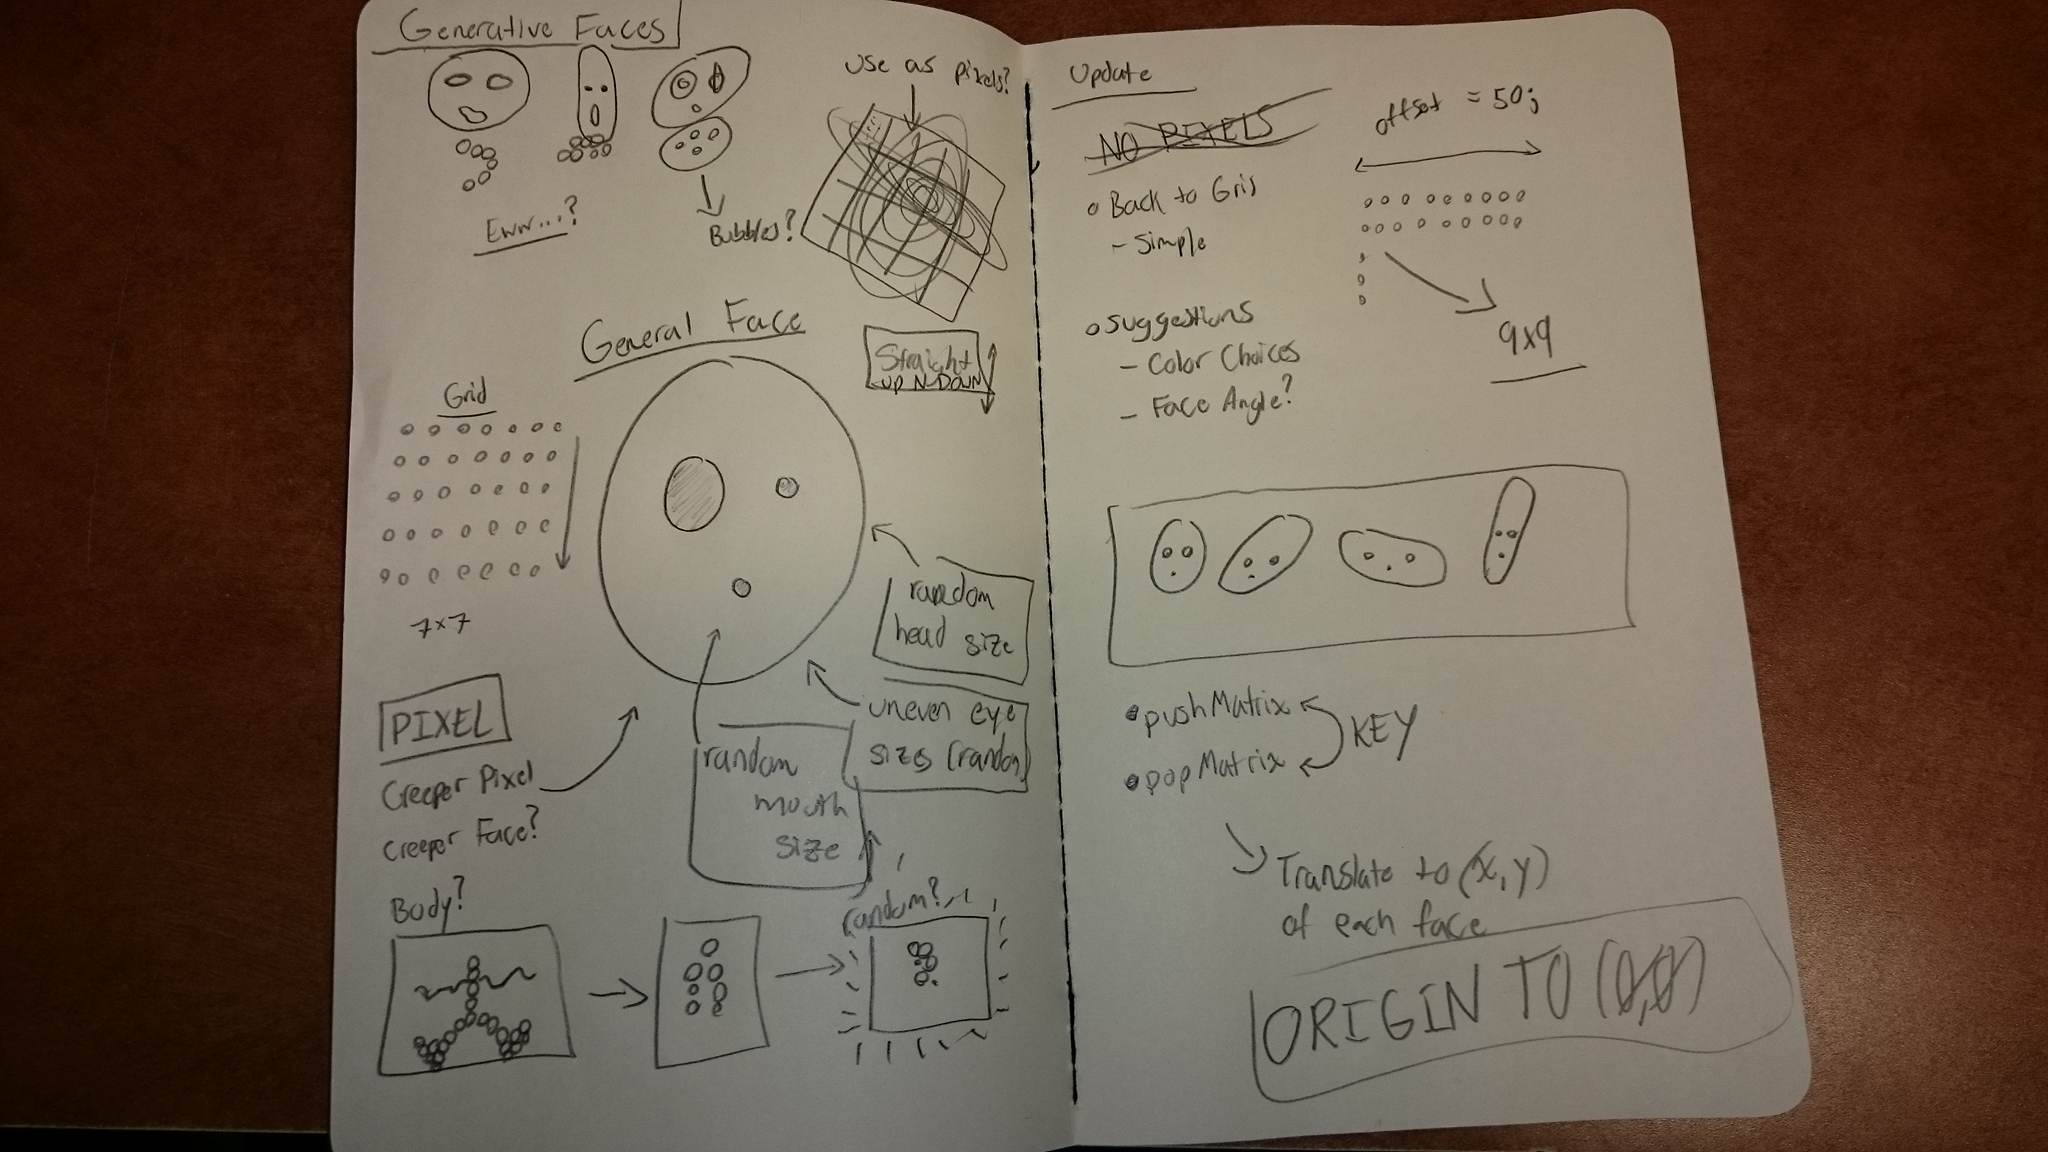 Generative Faces
Eww...?
Bubbles?
use as pixels?
General Face
Straight
UP N DOWN
Grid
7x7
random
head size
uneven eye
sizes (random)
random
mouth
size
PIXEL
Creeper Pixel
creeper Face?
Body?
random?
Update
NO PIXELS
Back to Grid
- Simple
offset = 50;
9x9
Suggestions
- Color Choices
- Face Angle?
pushMatrix
KEY
popMatrix
Translate to (x,y)
of each face
ORIGIN TO (0,0)